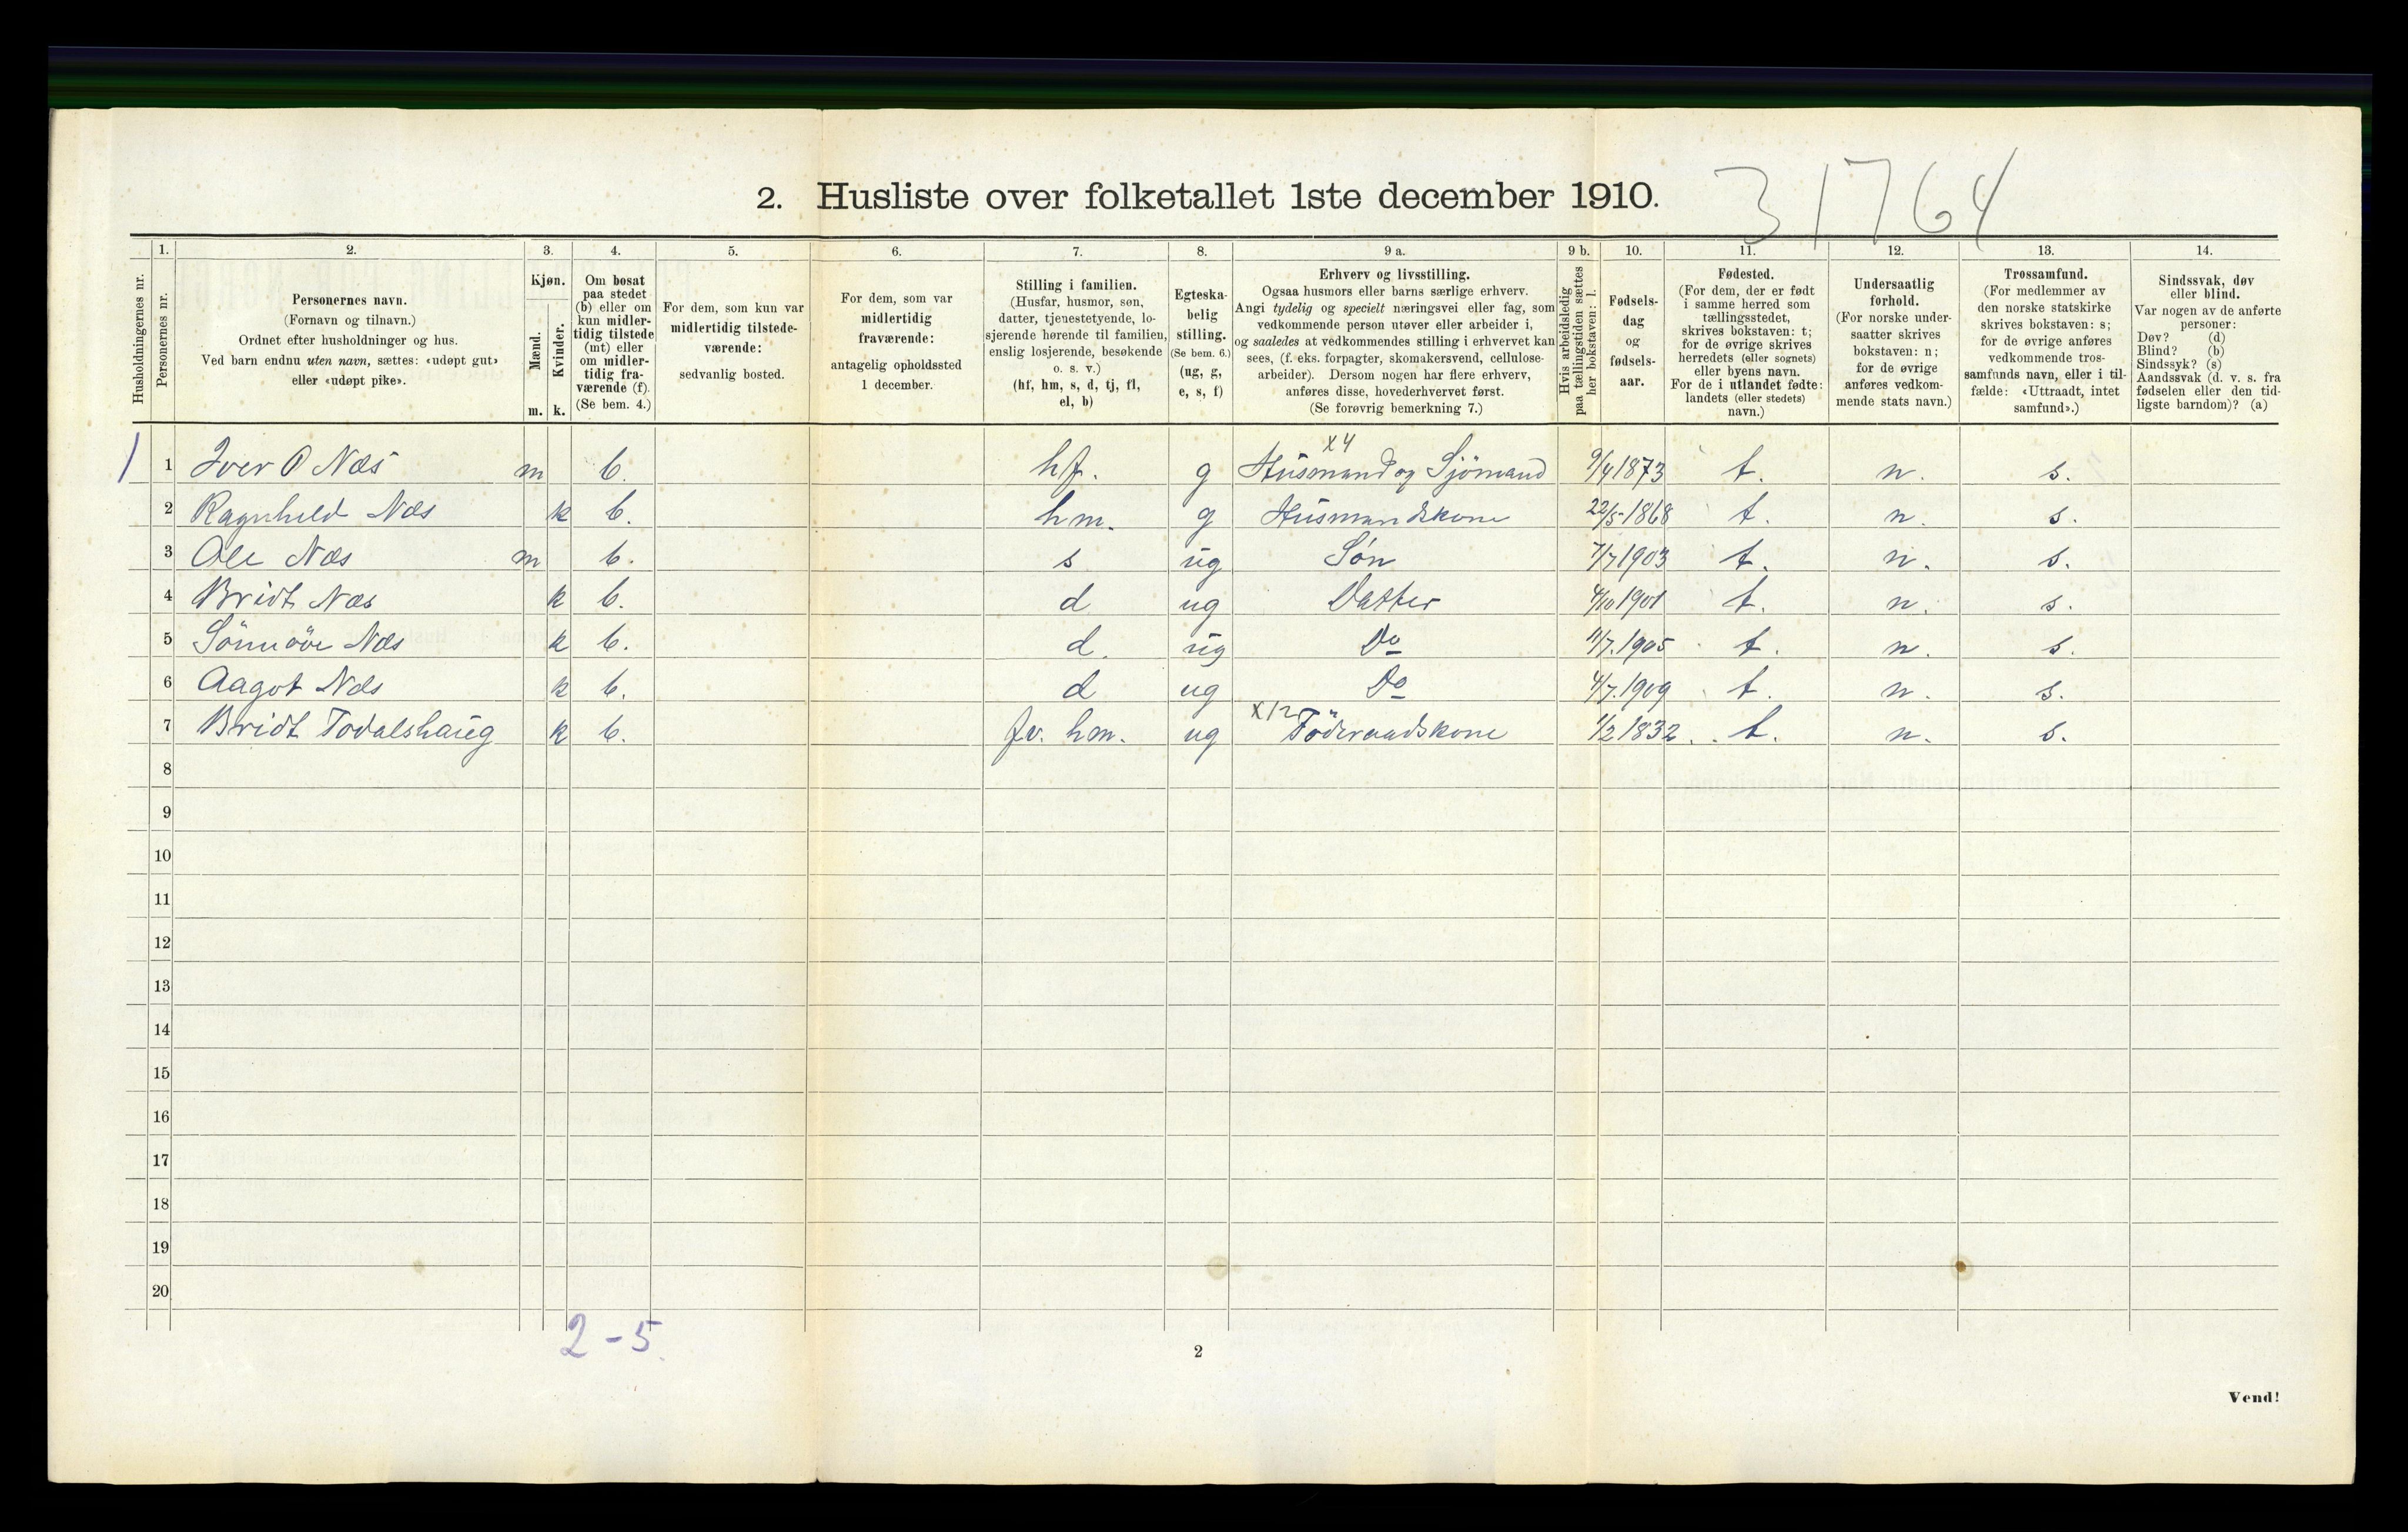 31764
2. Husliste over folketallet 1ste december 1910.
1. 2. 3. 4. 5. 6. 7. 8. 9 a. 9 b. 10. 11. 12. 13. 14.
Husholdningernes nr.
Personernes nr.
Personernes navn.
(Fornavn og tilnavn.)
Ordnet efter husholdninger og hus.
Ved barn endnu uten navn, sættes: «udøpt gut»
eller «udøpt pike».
Kjøn.
Mænd.
Kvinder.
m. k.
Om bosat
paa stedet
(b) eller om
kun midler-
tidig tilstede
(mt) eller
om midler-
tidig fra-
værende (f).
(Se bem. 4.)
For dem, som kun var
midlertidig tilstede-
værende:
sedvanlig bosted.
For dem, som var
midlertidig
fraværende:
antagelig opholdssted
1 december.
Stilling i familien.
(Husfar, husmor, søn,
datter, tjenestetyende, lo-
sjerende hørende til familien,
enslig losjerende, besøkende
o. s. v.)
(hf, hm, s, d, tj, fl,
el, b)
Egteska-
belig
stilling.
(Se bem. 6.)
(ug, g,
e, s, f)
Erhverv og livsstilling.
Ogsaa husmors eller barns særlige erhverv.
Angi tydelig og specielt næringsvei eller fag, som
vedkommende person utøver eller arbeider i,
og saaledes at vedkommendes stilling i erhvervet kan
sees, (f. eks. forpagter, skomakersvend, cellulose-
arbeider). Dersom nogen har flere erhverv,
anføres disse, hovederhvervet først.
(Se forøvrig bemerkning 7.)
Hvis arbeidsledig
paa tællingstiden sættes
her bokstaven: l.
Fødsels-
dag
og
fødsels-
aar.
Fødested.
(For dem, der er født
i samme herred som
tællingsstedet,
skrives bokstaven: t;
for de øvrige skrives
herredets (eller sognets)
eller byens navn.
For de i utlandet fødte:
landets (eller stedets)
navn.)
Undersaatlig
forhold.
(For norske under-
saatter skrives
bokstaven: n;
for de øvrige
anføres vedkom-
mende stats navn.)
Trossamfund.
(For medlemmer av
den norske statskirke
skrives bokstaven: s;
for de øvrige anføres
vedkommende tros-
samfunds navn, eller i til-
fælde: «Uttraadt, intet
samfund».)
Sindssvak, døv
eller blind.
Var nogen av de anførte
personer:
Døv? (d)
Blind? (b)
Sindssyk? (s)
Aandssvak (d. v. s. fra
fødselen eller den tid-
ligste barndom)? (a)
x4
1 1 Iver O Næs m b. hf. g Husmand og Sjömand 9/4 1873 t. n. s.
2 Ragnhild Næs k b. hm. g Husmandskone 22/5-1868 t. n. s.
3 Ole Næs m b. s ug Søn 7/7 1903 t. n. s.
4 Bridt Næs k b. d ug Datter 4/10 1901 t. n. s.
5 Sönnöve Næs k b. d. ug Do 11/7. 1905 t. n. s.
6 Aagot Næs k b. d ug Do 4/7. 1909 t. n. s.
x12
7 Bridt Todalshaug k b. fv. hm. ug Föderaadskone 1/2 1832 t. n. s.
8
9
10
11
12
13
14
15
16
17
18
19
20
2-5
2
Vend!